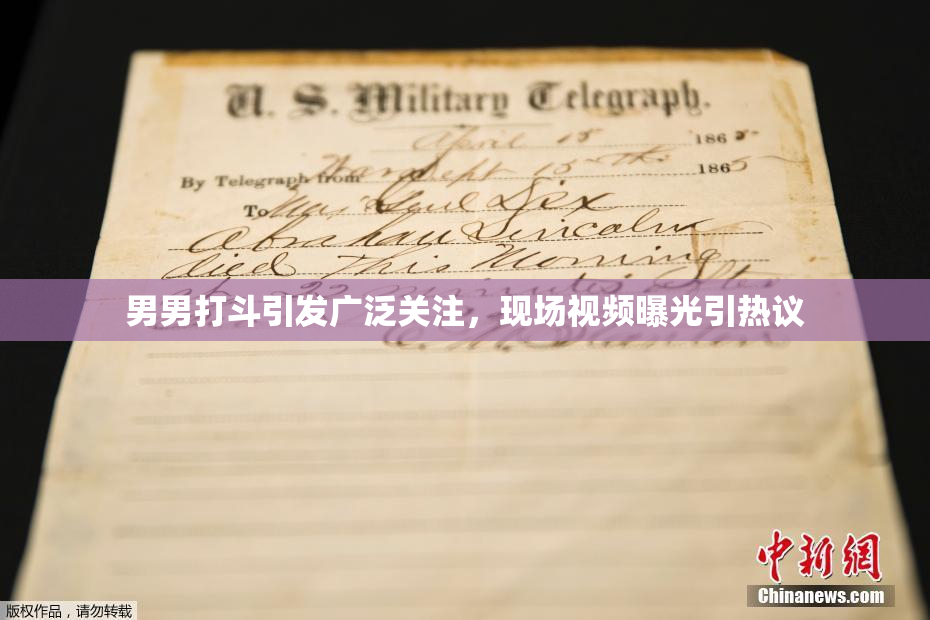 U. S. Military Telegraph.
April 15 1865
By Telegraph from War Dept 15th 1865
To Maj Genl Dix
Abraham Lincoln
died This Morning
22 minutes after
男男打斗引发广泛关注，现场视频曝光引热议
E. M. Stanton
中新网
Chinanews.com
版权作品，请勿转载